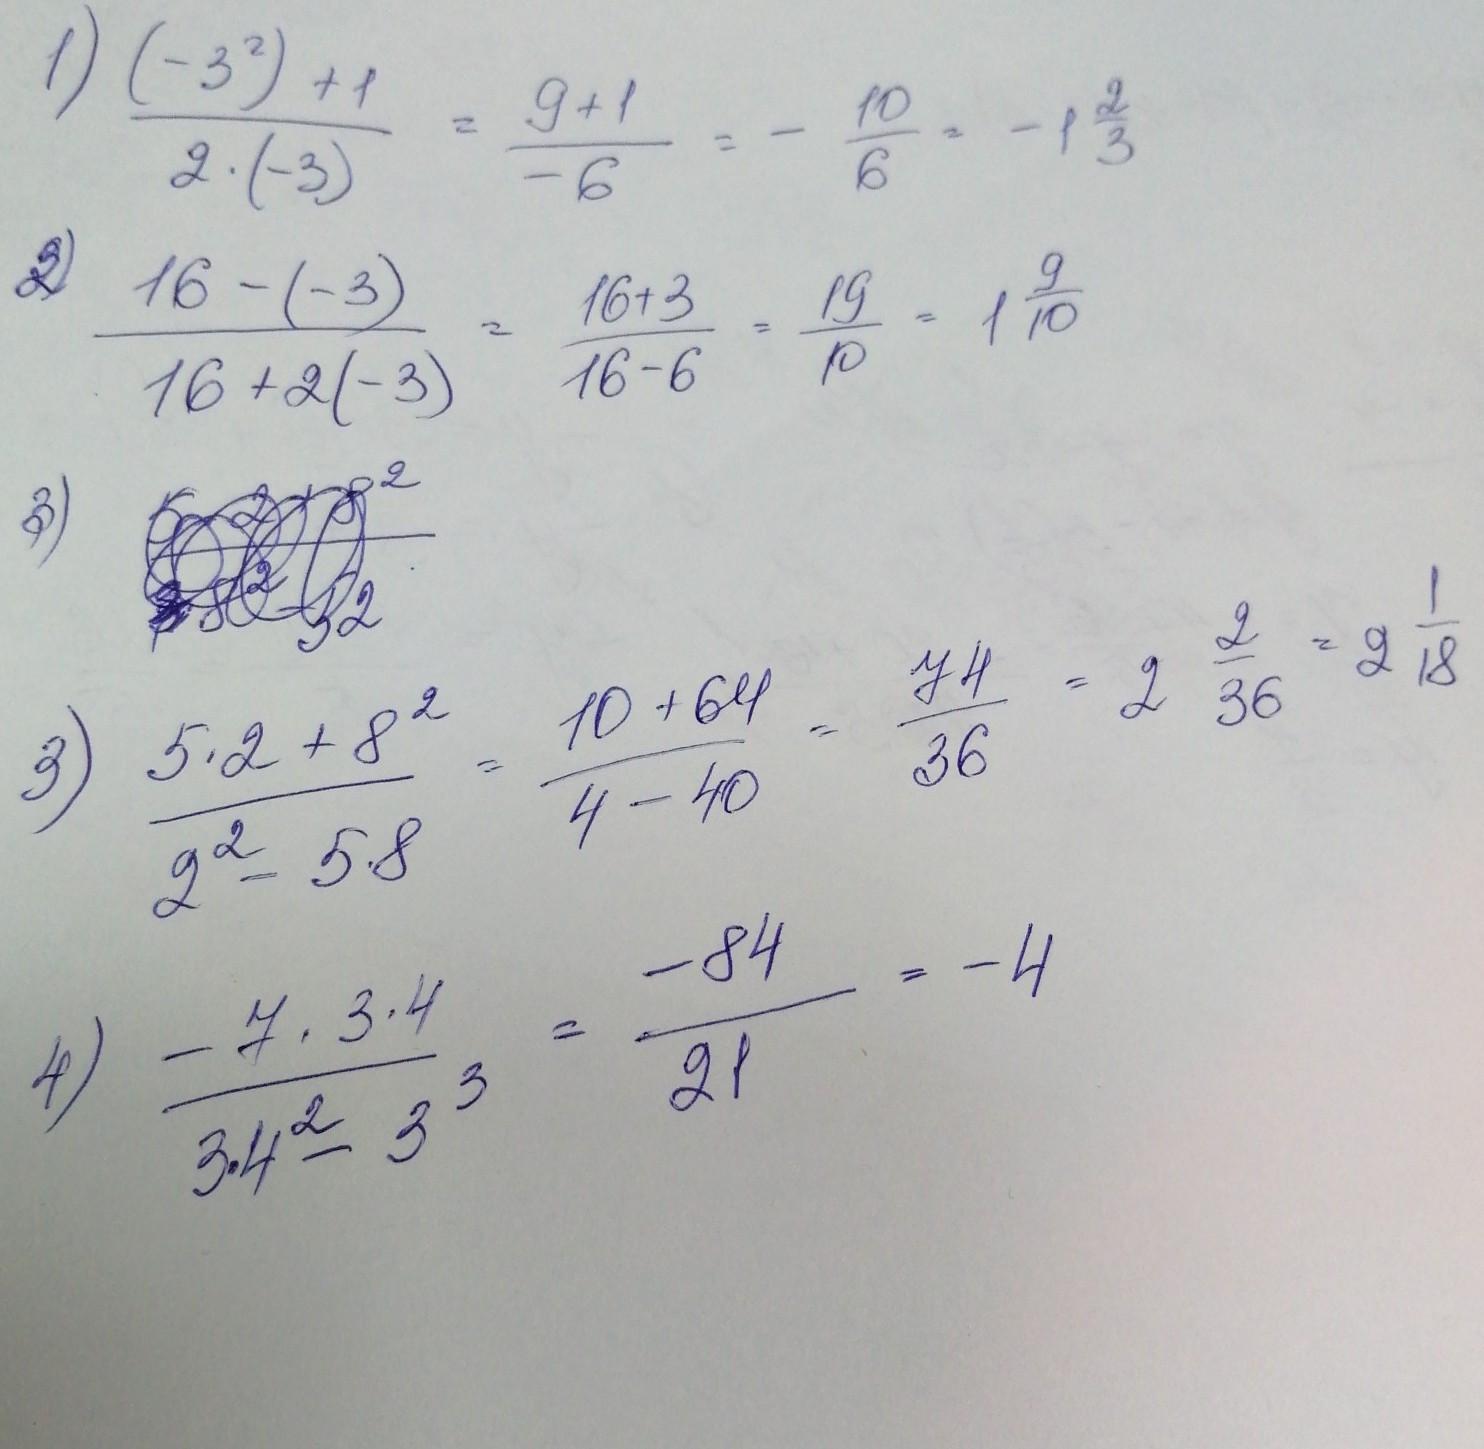 1) (-3²) + 1 / 2·(-3) = 9+1 / -6 = - 10/6 = -1 2/3
2) 16 - (-3) / 16 + 2(-3) = 16+3 / 16-6 = 19/10 = 1 9/10
3)
3) 5·2 + 8² / 2² - 5·8 = 10 + 64 / 4 - 40 = 74/36 = 2 2/36 = 2 1/18
4) -7·3·4 / 3·4² - 3³ = -84/21 = -4